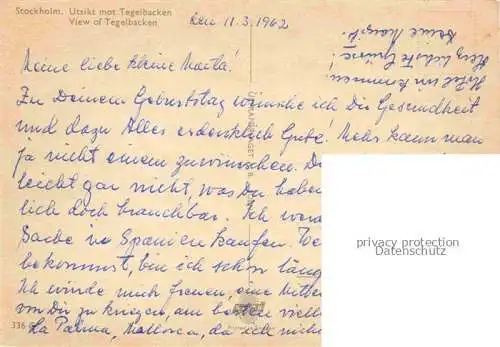 Stockholm. Utsikt mot Tegelbacken
View of Tegelbacken
den 11.3.1962
Meine liebe kleine Marta!
Zu Deinem Geburtstag wünsche ich Dir Gesundheit
und dazu Alles erdenklich Gute! Mehr kann man
ja nicht einem zuwünschen. Du
leicht gar nicht, was Du haben
lich doch brauchbar. Ich
Sache in Spanien kaufen. We
bekommst, bin ich schon läng
Ich würde mich freuen, eine Mitte
von Dir zu kriegen, am besten viell
La Palma, Mallorca, da ich nicht
336
Hotel
kommen
Herzlichste Grüsse!
Deine Margit.
privacy protection
Datenschutz